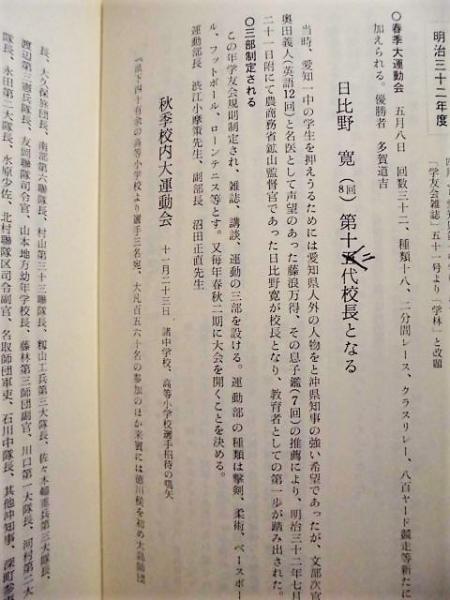 明治三十二年度
「学友会雑誌」五十一号より「学林」と改題
○春季大運動会 五月八日 回数三十二、種類十八、二分間レース、クラスリレー、八百ヤード競走等新たに
加えられる。優勝者 多賀道吉
日比野 寛(8回)第十五代校長となる
三
当時、愛知一中の学生を押えうるためには愛知県人外の人物をと沖県知事の強い希望であったが、文部次官
奥田義人(英語12回)と名医として声望のあった藤浪万得、その息子鑑(7回)の推薦により、明治三十二年七月
二十一日附にて農商務省鉱山監督官であった日比野寛が校長となり、教育者としての第一歩が踏み出された。
○三部制定される
この年学友会規則制定され、雑誌、講談、運動の三部を設ける。運動部の種類は撃剣、柔術、ベースボー
ル、フットボール、ローンテニス等とす。又毎年春秋二期に大会を開くことを決める。
運動部長 渋江小摩策先生、副部長 沼田正直先生
秋季校内大運動会
十一月二十三日、諸中学校、高等小学校選手招待の嚆矢
県下四十有余の高等小学校より選手三名宛、大凡百五六十名の参加のほか来賓には徳川侯を初め大島師団
長、大久保旅団長、南部第六聯隊長、村山第三十三聯隊長、楠山工兵第三大隊長、佐々木輜重兵第三大隊長、
渡辺第三憲兵隊長、友岡聯隊司令官、山本地方幼年学校長、藤林第三師団副官、川口第一大隊長、河村第二大
隊長、永田第二大隊長、水原少佐、北村聯隊区司令副官、名取師団軍吏、石川中隊長、其他沖知事、深町参事